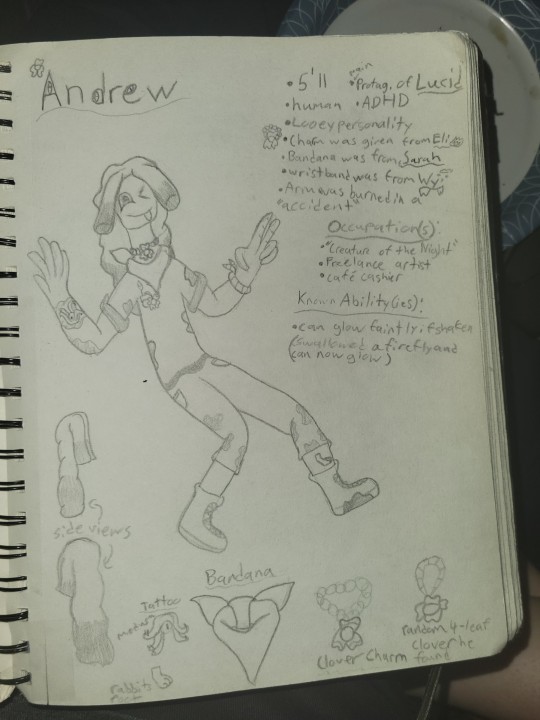 Andrew
•5'11
•main Protag. of Lucid
•human •ADHD
•Looey personality
•Charm was given from Eli
•Bandana was from Sarah
•wristband was from Wyi
•Arm was burned in a
"accident"
Occupation(s):
•"Creature of the Night"
•Freelance artist
•café cashier
Known Ability(ies):
•can glow faintly if shaken
(swallowed a firefly and
can now glow)
side views
Tattoo
Bandana
Clover Charm
random 4-leaf
clover he
found
rabbits